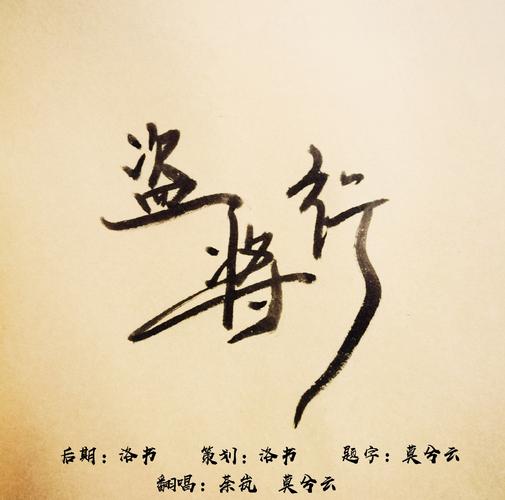 盗将行
后期：洛书 策划：洛书 题字：莫兮云
翻唱：茶岚 莫兮云